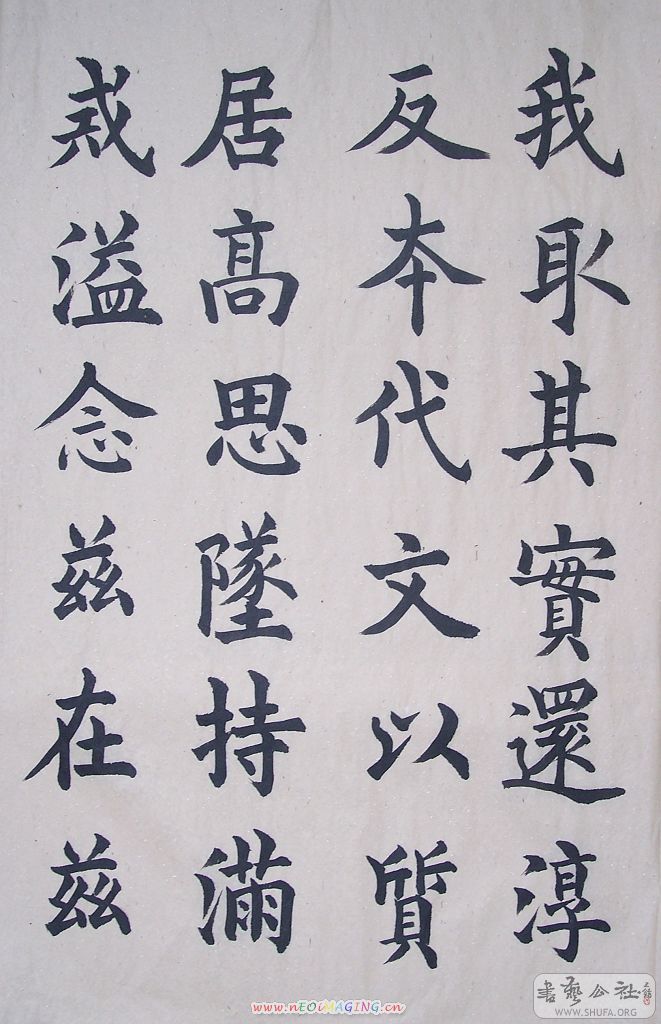 我取其實還淳
反本代文以質
居高思墜持滿
戒溢念茲在茲
書藝公社
WWW.SHUFA.ORG
www.nEOiMAGING.cn